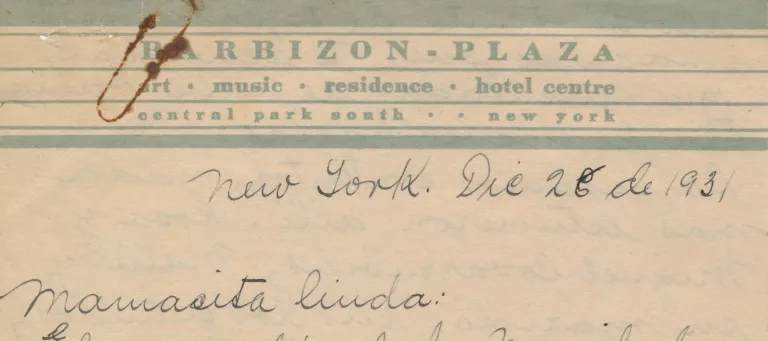 BARBIZON - PLAZA
art · music · residence · hotel centre
central park south · · new york
New York. Dic 26 de 1931
Mamacita linda:
El